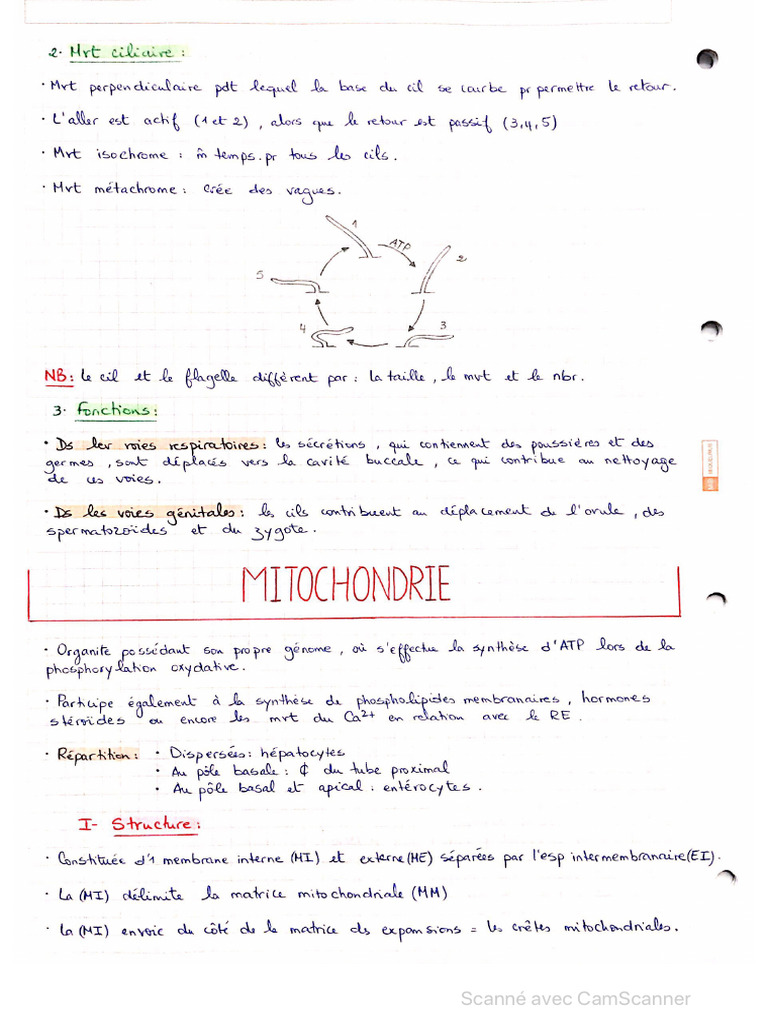 2. Mvt ciliaire :
• Mvt perpendiculaire pdt lequel la base du cil se courbe pr permettre le retour.
• L'aller est actif (1 et 2), alors que le retour est passif (3,4,5)
• Mvt isochrome : m̂ temps pr tous les cils.
• Mvt métachrome : Crée des vagues.
1
ATP
2
5
4
3
NB: Le cil et le flagelle diffèrent par : la taille, le mvt et le nbr.
3. Fonctions :
• Ds les voies respiratoires : les sécrétions, qui contiennent des poussières et des
germes, sont déplacés vers la cavité buccale, ce qui contribue au nettoyage
de ces voies.
• Ds les voies génitales : les cils contribuent au déplacement de l'ovule, des
spermatozoïdes et du zygote.
MITOCHONDRIE
• Organite possédant son propre génome, où s'effectue la synthèse d'ATP lors de la
phosphorylation oxydative.
• Participe également à la synthèse de phospholipides membranaires, hormones
stéroïdes ou encore les mvt du Ca2+ en relation avec le RE.
• Répartition : • Dispersées : hépatocytes
• Au pôle basale : ₵ du tube proximal
• Au pôle basal et apical : entérocytes.
I- Structure :
• Constituée d'1 membrane interne (MI) et externe (ME) séparées par l'esp intermembranaire (EI).
• La (MI) délimite la matrice mitochondriale (MM)
• La (MI) envoie du côté de la matrice ds expansions = les crêtes mitochondriales.
Scanné avec CamScanner